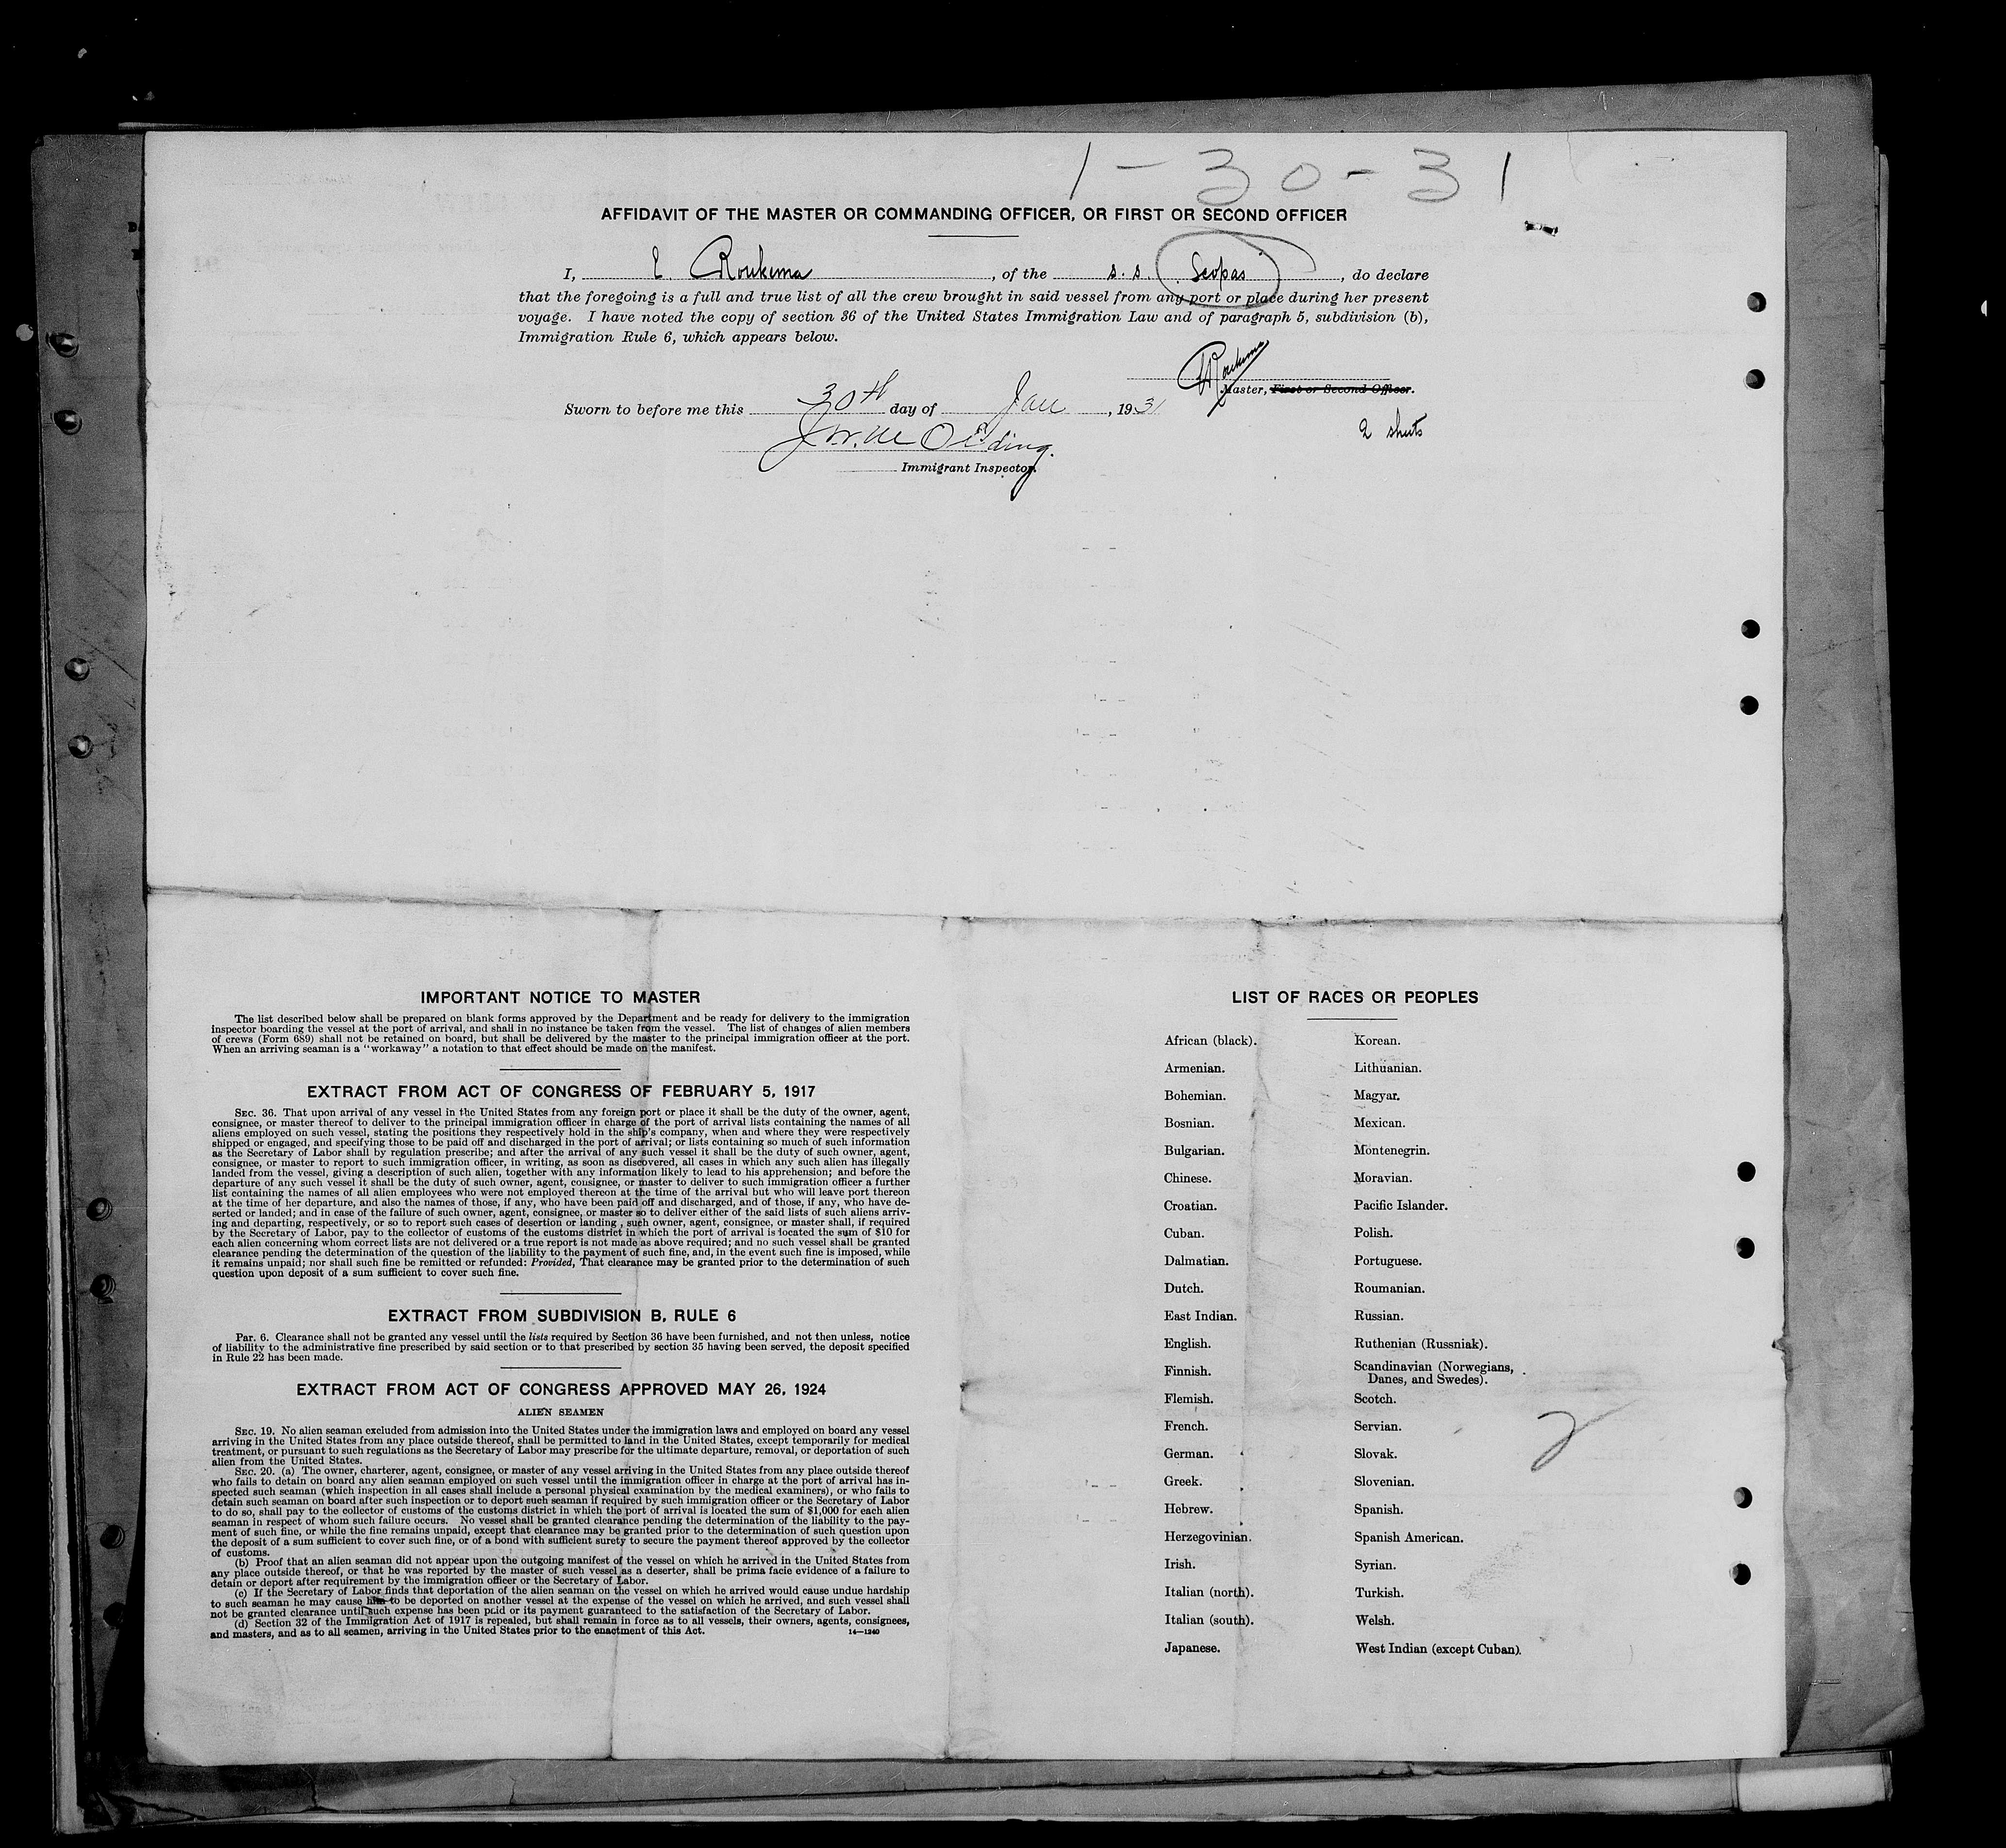 1-30-31
AFFIDAVIT OF THE MASTER OR COMMANDING OFFICER, OR FIRST OR SECOND OFFICER
I, E Roukema, of the s.s. Scopas, do declare
that the foregoing is a full and true list of all the crew brought in said vessel from any port or place during her present
voyage. I have noted the copy of section 36 of the United States Immigration Law and of paragraph 5, subdivision (b),
Immigration Rule 6, which appears below.
Roukema
Master, First or Second Officer.
Sworn to before me this 30th day of Jan, 1931
2 sheets
Immigrant Inspector.
IMPORTANT NOTICE TO MASTER
The list described below shall be prepared on blank forms approved by the Department and be ready for delivery to the immigration
inspector boarding the vessel at the port of arrival, and shall in no instance be taken from the vessel. The list of changes of alien members
of crews (Form 689) shall not be retained on board, but shall be delivered by the master to the principal immigration officer at the port.
When an arriving seaman is a "workaway" a notation to that effect should be made on the manifest.
EXTRACT FROM ACT OF CONGRESS OF FEBRUARY 5, 1917
SEC. 36. That upon arrival of any vessel in the United States from any foreign port or place it shall be the duty of the owner, agent,
consignee, or master thereof to deliver to the principal immigration officer in charge of the port of arrival lists containing the names of all
aliens employed on such vessel, stating the positions they respectively hold in the ship's company, when and where they were respectively
shipped or engaged, and specifying those to be paid off and discharged in the port of arrival; or lists containing so much of such information
as the Secretary of Labor shall by regulation prescribe; and after the arrival of any such vessel it shall be the duty of such owner, agent,
consignee, or master to report to such immigration officer, in writing, as soon as discovered, all cases in which any such alien has illegally
landed from the vessel, giving a description of such alien, together with any information likely to lead to his apprehension; and before the
departure of any such vessel it shall be the duty of such owner, agent, consignee, or master to deliver to such immigration officer a further
list containing the names of all alien employees who were not employed thereon at the time of the arrival but who will leave port thereon
at the time of her departure, and also the names of those, if any, who have been paid off and discharged, and of those, if any, who have de-
serted or landed; and in case of the failure of such owner, agent, consignee, or master so to deliver either of the said lists of such aliens arriv-
ing and departing, respectively, or so to report such cases of desertion or landing, such owner, agent, consignee, or master shall, if required
by the Secretary of Labor, pay to the collector of customs of the customs district in which the port of arrival is located the sum of $10 for
each alien concerning whom correct lists are not delivered or a true report is not made as above required; and no such vessel shall be granted
clearance pending the determination of the question of the liability to the payment of such fine, and, in the event such fine is imposed, while
it remains unpaid; nor shall such fine be remitted or refunded: Provided, That clearance may be granted prior to the determination of such
question upon deposit of a sum sufficient to cover such fine.
EXTRACT FROM SUBDIVISION B, RULE 6
Par. 6. Clearance shall not be granted any vessel until the lists required by Section 36 have been furnished, and not then unless, notice
of liability to the administrative fine prescribed by said section or to that prescribed by section 35 having been served, the deposit specified
in Rule 22 has been made.
EXTRACT FROM ACT OF CONGRESS APPROVED MAY 26, 1924
ALIEN SEAMEN
SEC. 19. No alien seaman excluded from admission into the United States under the immigration laws and employed on board any vessel
arriving in the United States from any place outside thereof, shall be permitted to land in the United States, except temporarily for medical
treatment, or pursuant to such regulations as the Secretary of Labor may prescribe for the ultimate departure, removal, or deportation of such
alien from the United States.
SEC. 20. (a) The owner, charterer, agent, consignee, or master of any vessel arriving in the United States from any place outside thereof
who fails to detain on board any alien seaman employed on such vessel until the immigration officer in charge at the port of arrival has in-
spected such seaman (which inspection in all cases shall include a personal physical examination by the medical examiners), or who fails to
detain such seaman on board after such inspection or to deport such seaman if required by such immigration officer or the Secretary of Labor
to do so, shall pay to the collector of customs of the customs district in which the port of arrival is located the sum of $1,000 for each alien
seaman in respect of whom such failure occurs. No vessel shall be granted clearance pending the determination of the liability to the pay-
ment of such fine, or while the fine remains unpaid, except that clearance may be granted prior to the determination of such question upon
the deposit of a sum sufficient to cover such fine, or of a bond with sufficient surety to secure the payment thereof approved by the collector
of customs.
(b) Proof that an alien seaman did not appear upon the outgoing manifest of the vessel on which he arrived in the United States from
any place outside thereof, or that he was reported by the master of such vessel as a deserter, shall be prima facie evidence of a failure to
detain or deport after requirement by the immigration officer or the Secretary of Labor.
(c) If the Secretary of Labor finds that deportation of the alien seaman on the vessel on which he arrived would cause undue hardship
to such seaman he may cause him to be deported on another vessel at the expense of the vessel on which he arrived, and such vessel shall
not be granted clearance until such expense has been paid or its payment guaranteed to the satisfaction of the Secretary of Labor.
(d) Section 32 of the Immigration Act of 1917 is repealed, but shall remain in force as to all vessels, their owners, agents, consignees,
and masters, and as to all seamen, arriving in the United States prior to the enactment of this Act.
14—1240
LIST OF RACES OR PEOPLES
African (black).
Armenian.
Bohemian.
Bosnian.
Bulgarian.
Chinese.
Croatian.
Cuban.
Dalmatian.
Dutch.
East Indian.
English.
Finnish.
Flemish.
French.
German.
Greek.
Hebrew.
Herzegovinian.
Irish.
Italian (north).
Italian (south).
Japanese.
Korean.
Lithuanian.
Magyar.
Mexican.
Montenegrin.
Moravian.
Pacific Islander.
Polish.
Portuguese.
Roumanian.
Russian.
Ruthenian (Russniak).
Scandinavian (Norwegians,
Danes, and Swedes).
Scotch.
Servian.
Slovak.
Slovenian.
Spanish.
Spanish American.
Syrian.
Turkish.
Welsh.
West Indian (except Cuban).
2